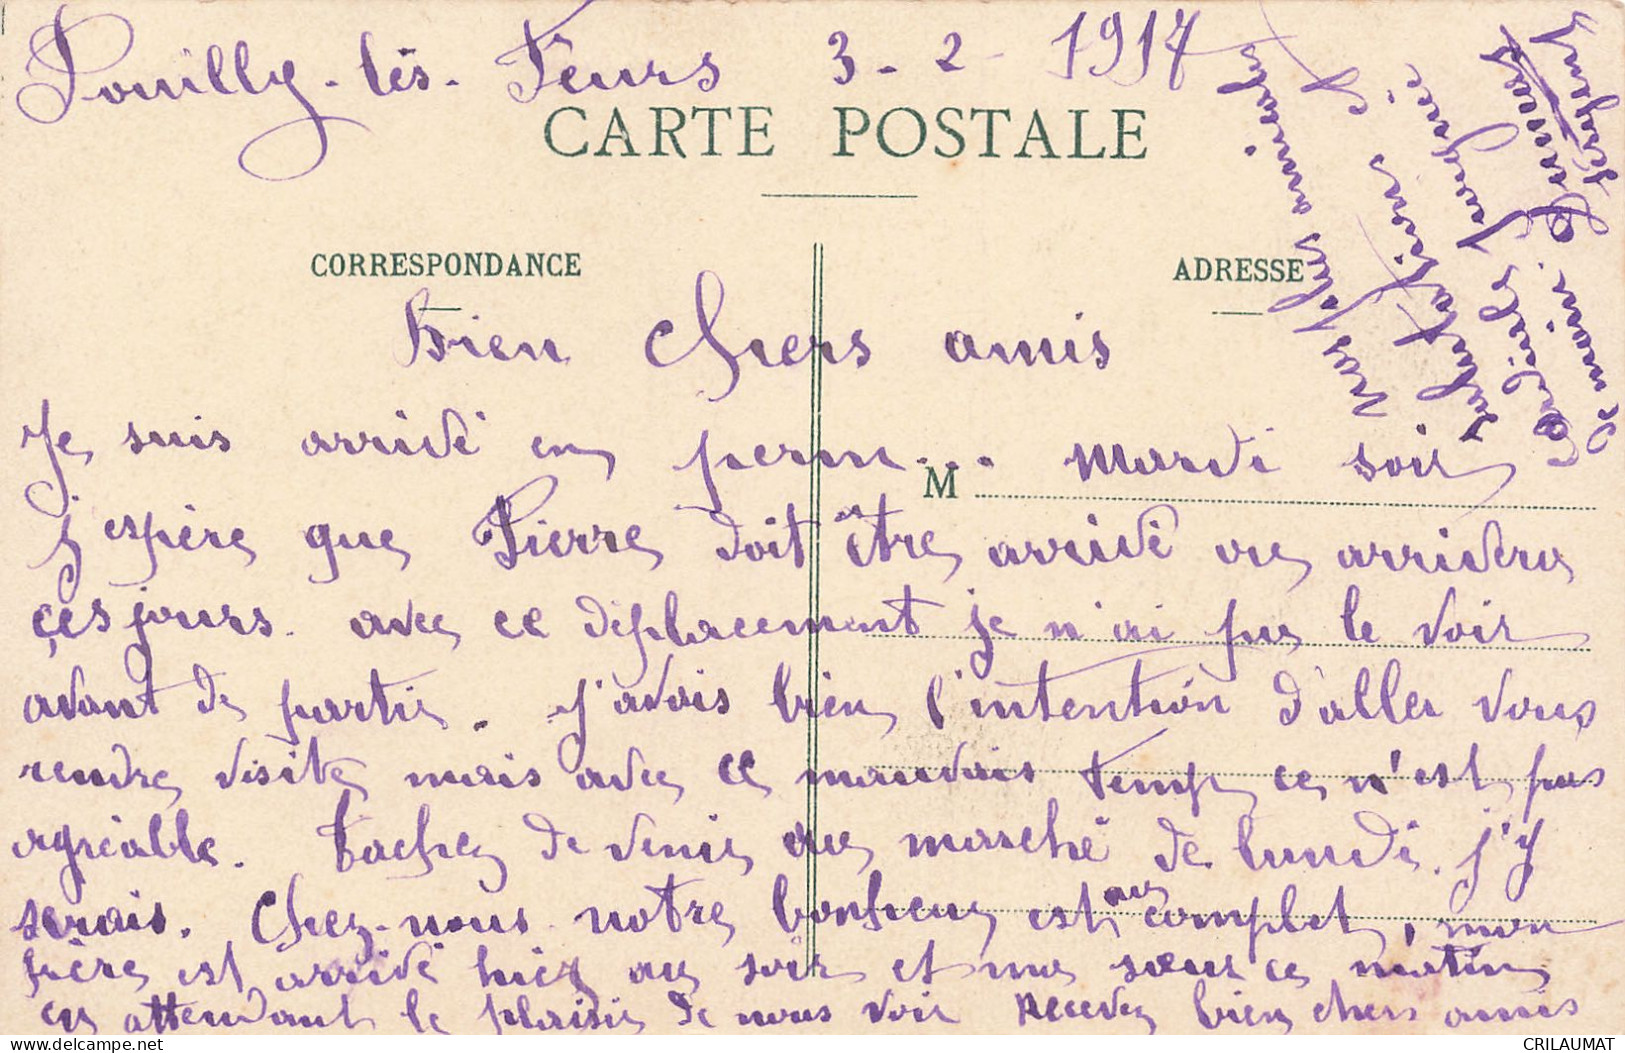 Pouilly-lès-Feurs 3-2-1917
CARTE POSTALE
CORRESPONDANCE
ADRESSE
M
Bien chers amis
Je suis arrivé en perm... mardi soir
j'espère que Pierre doit être arrivé ou arrivera
ces jours. avec ce déplacement je n'ai pu le voir
avant de partir. j'avais bien l'intention d'aller vous
rendre visite mais avec ce mauvais temp ce n'est pas
agréable. tachez de venir au marché de lundi. j'y
serais. Chez-nous notre bonheur est au complet, mon
frère est arrivé hier au soir et ma sœur ce matin
en attendant le plaisir de nous voir Recevez bien chers amis
nos plus amicales
salutations et
cordiales poignée
de main.
CRILAUMAT